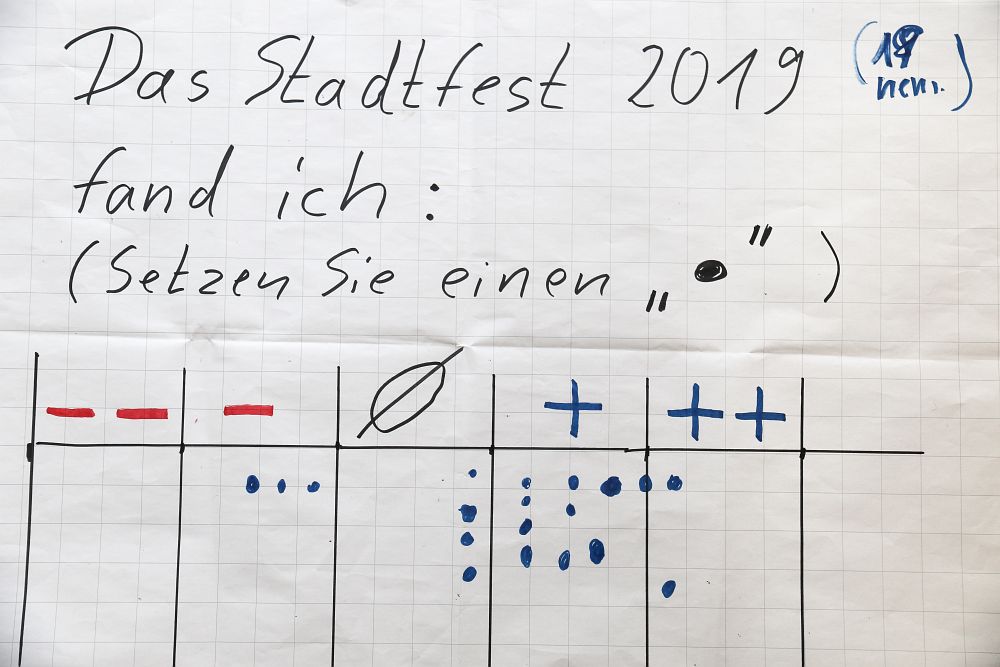 Das Stadtfest 2019
fand ich:
(Setzen Sie einen „●")
-- - Ø + ++